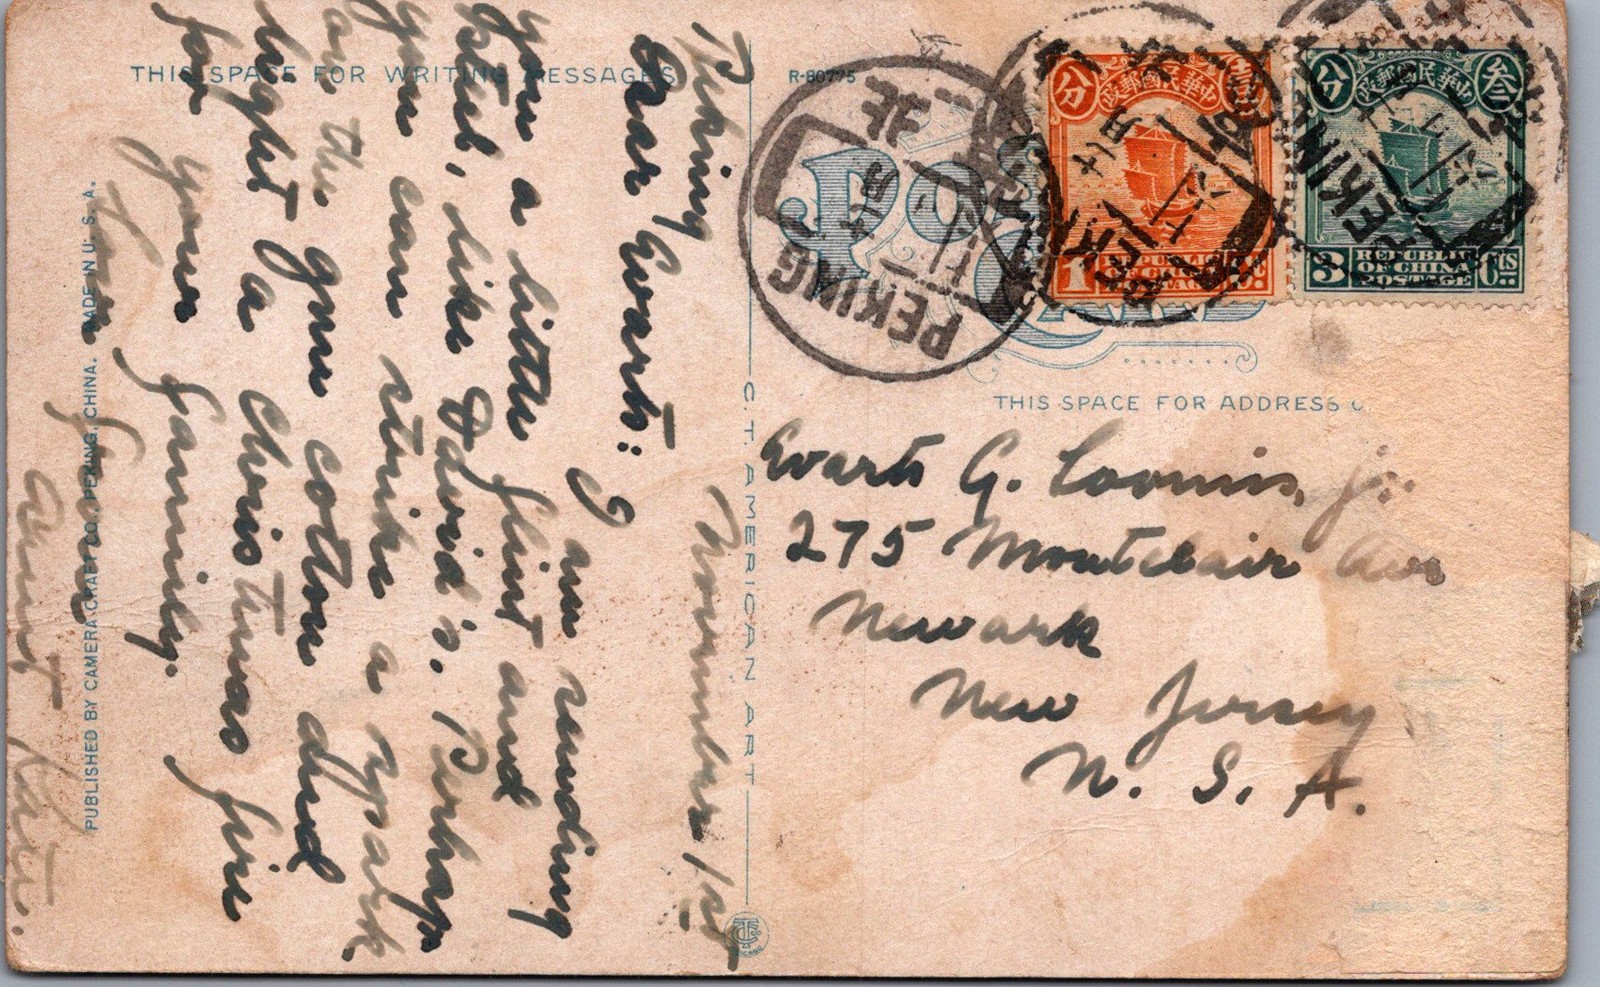 THIS SPACE FOR WRITING MESSAGES
Peking November 1st
Dear Evarts: I
am sending
you a little flint and
steel, like David's. Perhaps
you can strike a spark
on the gun cotton and
light a Christmas fire
for your family.
Love from
Aunt Katie.
PUBLISHED BY CAMERA CRAFT CO., PEKING, CHINA. MADE IN U. S. A.
C. T. AMERICAN ART
R-80775
POST CARD
北
PEKING
PEKING
PEKING
中華民國郵政
壹 分
1 REPUBLIC OF CHINA POSTAGE c.
中華民國郵政
叁 分
3 REPUBLIC OF CHINA POSTAGE Cts
THIS SPACE FOR ADDRESS O
Evarts G. Loomis, Jr.
275 Montclair Ave
Newark
New Jersey
U. S. A.